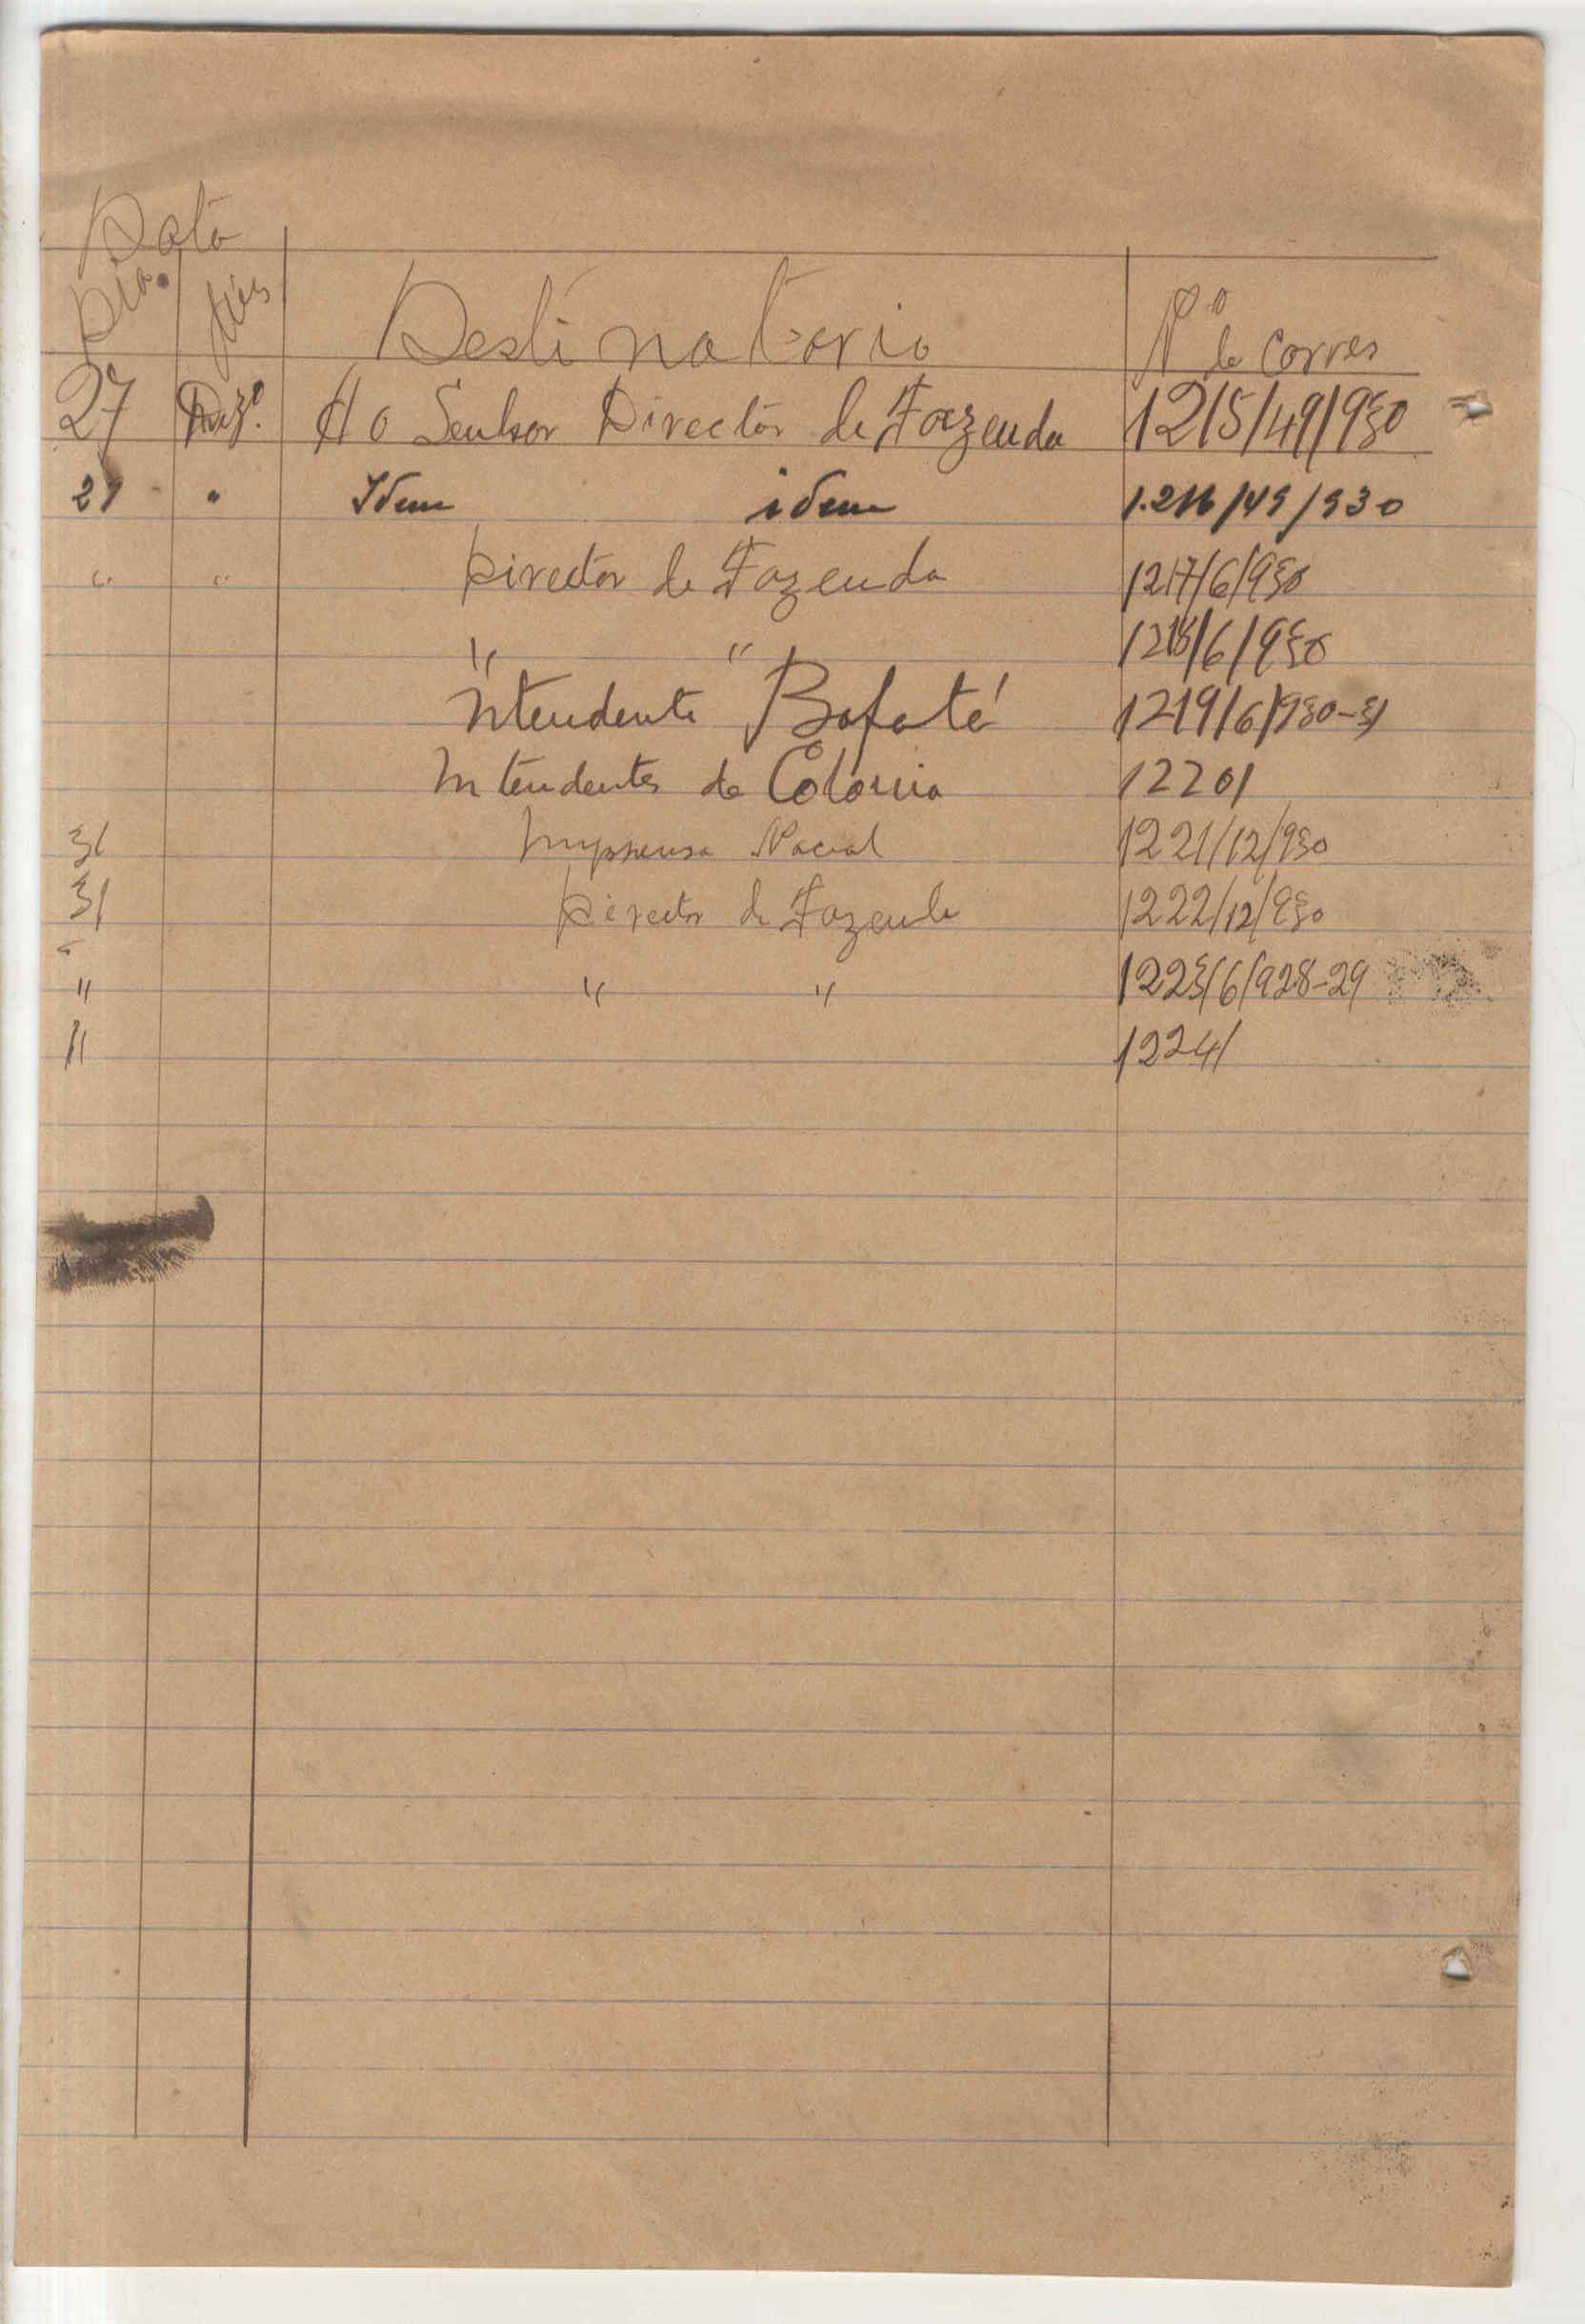 Data
Dia Mês Destinatario Nº de Corres
27 Dezº. Ao Senhor Director de Fazenda 1215/49/930
27 " Idem idem 1.216/49/930
" " Director de Fazenda 1217/6/930
" " 1218/6/930
Intendente Bafatá 1219/6/930-31
Intendentes da Colonia 1220/
31 Imprensa Nacial 1221/12/930
31 Director de Fazenda 1222/12/930
" " " 1223/6/928-29
" 1224/